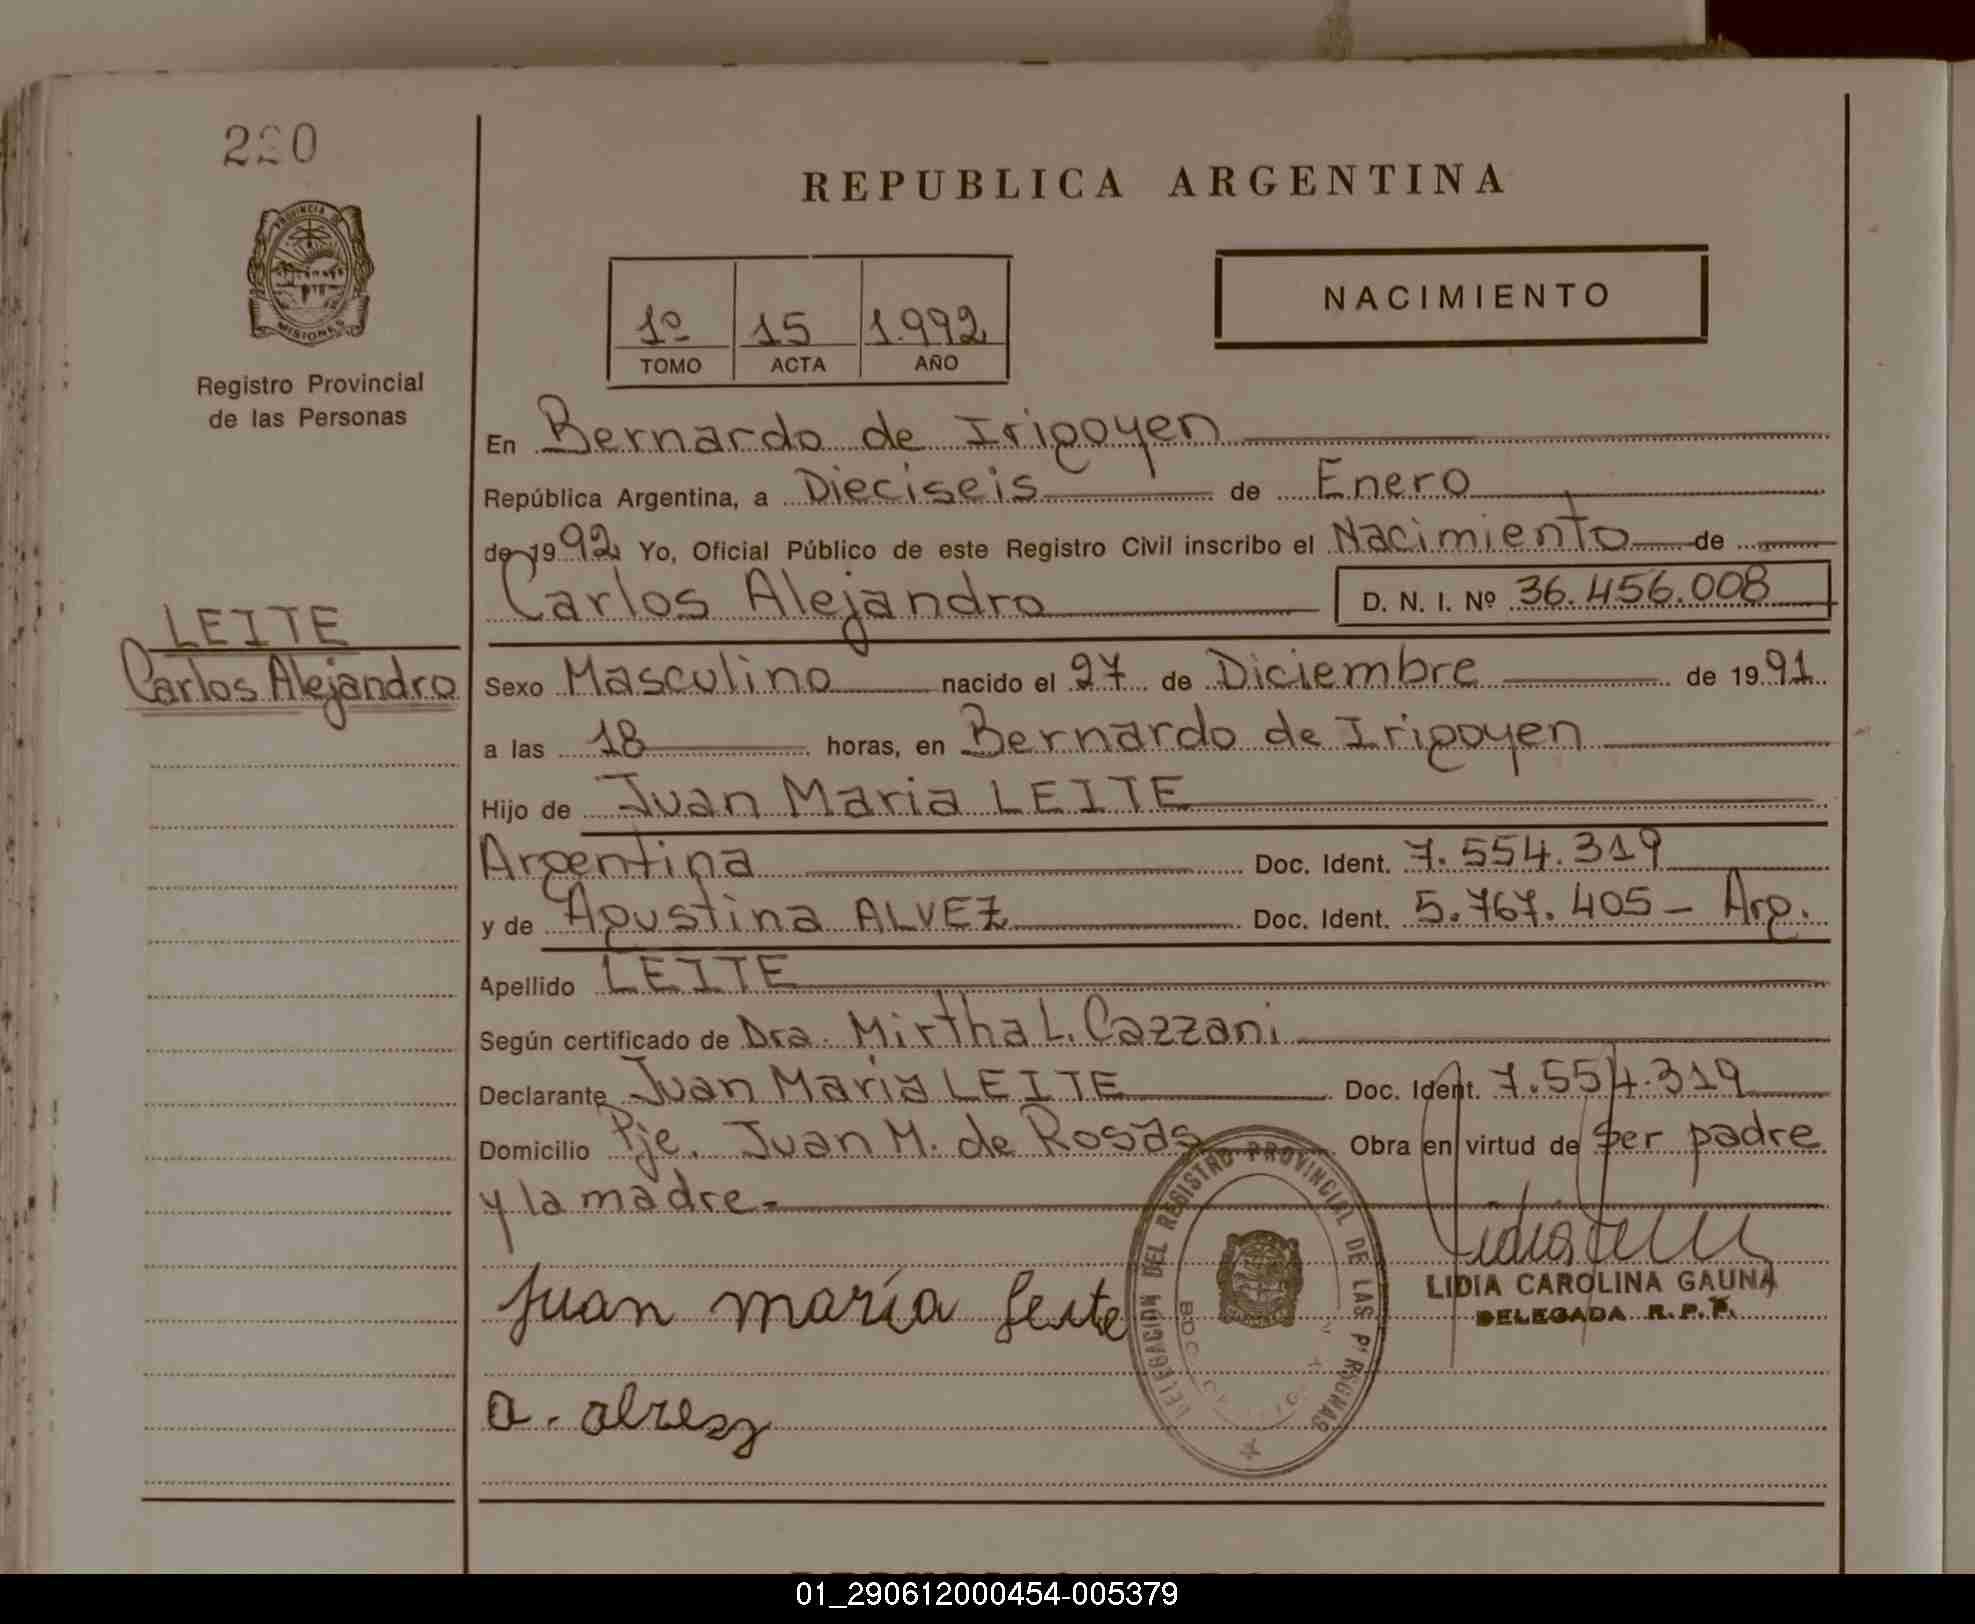 220
PROVINCIA DE
MISIONES
Registro Provincial
de las Personas
LEITE
Carlos Alejandro
REPUBLICA ARGENTINA
1º 15 1.992
TOMO ACTA AÑO
NACIMIENTO
En Bernardo de Irigoyen
República Argentina, a Dieciseis de Enero
de 1992 Yo, Oficial Público de este Registro Civil inscribo el Nacimiento de
Carlos Alejandro D. N. I. Nº 36.456.008
Sexo Masculino nacido el 27 de Diciembre de 1991
a las 18 horas, en Bernardo de Irigoyen
Hijo de Juan Maria LEITE
Argentina Doc. Ident. 7.554.319
y de Agustina ALVEZ Doc. Ident. 5.767.405 - Arg.
Apellido LEITE
Según certificado de Dra. Mirtha L. Cazzani
Declarante Juan Maria LEITE Doc. Ident. 7.554.319
Domicilio Pje. Juan M. de Rosas Obra en virtud de ser padre
y la madre.-
Juan maría Leite
DELEGACIÓN DEL REGISTRO PROVINCIAL DE LAS PERSONAS
BDO.
LIDIA CAROLINA GAUNA
DELEGADA R.P.P.
a. alvez
01_290612000454-005379